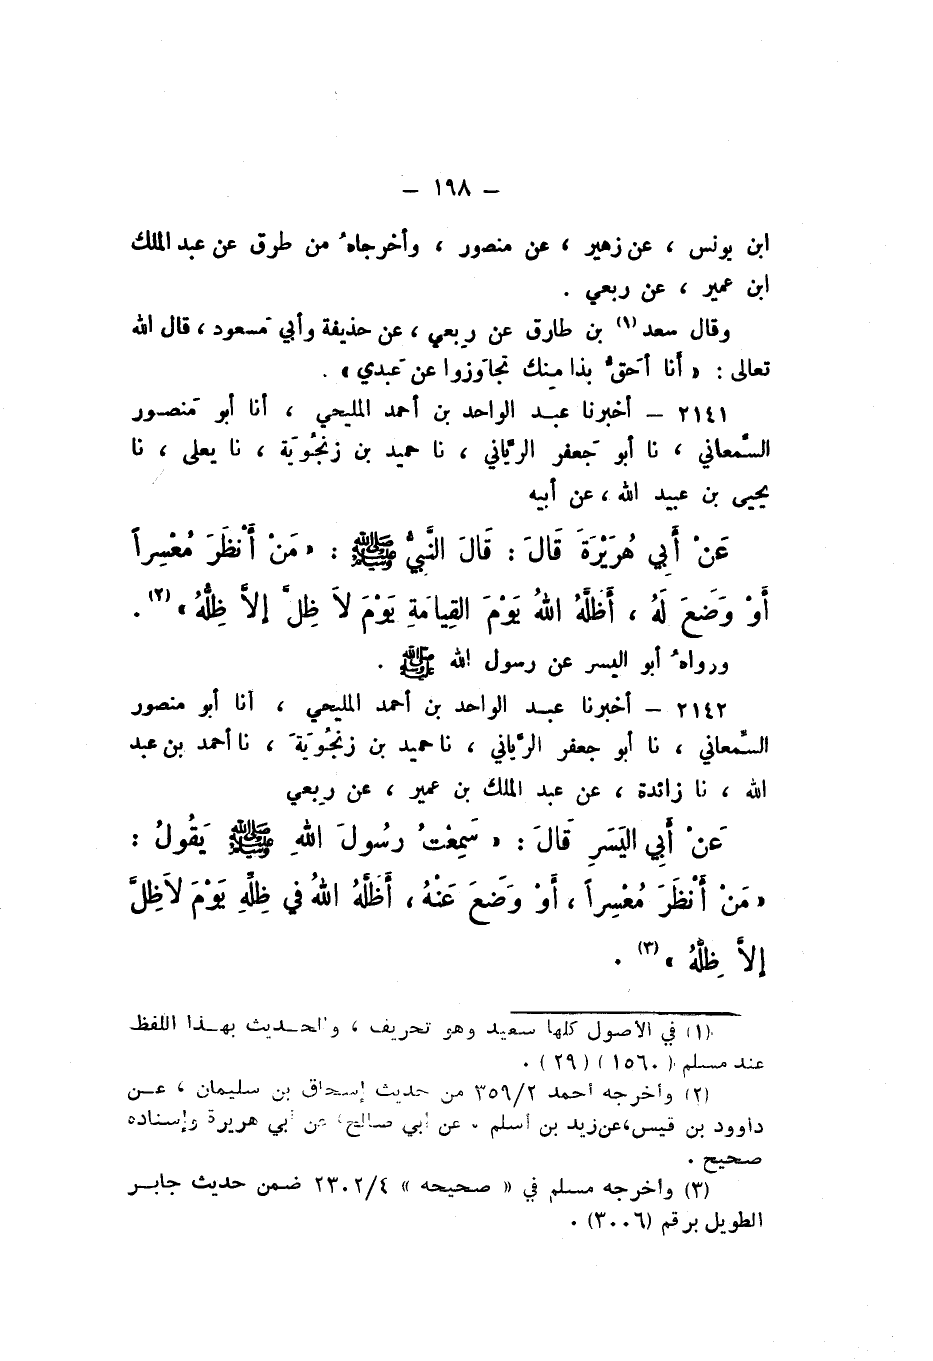 – ١٩٨ –
ابن يونس ، عن زهير ، عن منصور ، وأخرجاهُ من طرق عن عبد الملك
ابن عمير ، عن ربعي .
وقال سعد (١) بن طارق عن رِبعي ، عن حذيفة وأبي مَسعود ، قال الله
تعالى : « أنا أَحقُّ بذا مِنك تجاوَزوا عن عَبدي » .
٢١٤١ – أخبرنا عبد الواحد بن أحمد المليحي ، أنا أبو مَنصور
السَّمعاني ، نا أبو جَعفر الرَّيّاني ، نا حميد بن زنجُويَة ، نا يعلى ، نا
يحيى بن عبيد الله ، عن أبيه
عَنْ أَبِي هُرَيْرَةَ قَالَ : قَالَ النَّبِيُّ ﷺ : « مَنْ أَنْظَرَ مُعْسِراً
أَوْ وَضَعَ لَهُ ، أَظَلَّهُ اللهُ يَوْمَ القِيامَةِ يَوْمَ لاَ ظِلَّ إلاَّ ظِلُّهُ » (٢) .
ورواهُ أبو اليسر عن رسول الله ﷺ .
٢١٤٢ – أخبرنا عبد الواحد بن أحمد المليحي ، أنا أبو منصور
السَّمعاني ، نا أبو جعفر الرَّيّاني ، نا حميد بن زنجُويَةَ ، نا أحمد بن عبد
الله ، نا زائدة ، عن عبد الملك بن عمير ، عن رِبعي
عَنْ أَبِي اليَسَرِ قَالَ : « سَمِعْتُ رسُولَ اللهِ ﷺ يَقُولُ :
« مَنْ أَنْظَرَ مُعْسِراً ، أَوْ وَضَعَ عَنْهُ ، أَظَلَّهُ اللهُ في ظِلِّهِ يَوْمَ لاَظِلَّ
إلاَّ ظِلُّهُ » (٣) .
(١) في الأصول كلها سعيد وهو تحريف ، والحديث بهذا اللفظ
عند مسلم ( ١٥٦٠ ) ( ٢٩ ) .
(٢) وأخرجه أحمد ٣٥٩/٢ من حديث إسحاق بن سليمان ، عن
داوود بن قيس،عن زيد بن أسلم ، عن أبي صالح، عن أبي هريرة وإسناده
صحيح .
(٣) وأخرجه مسلم في « صحيحه » ٢٣٠٢/٤ ضمن حديث جابر
الطويل برقم (٣٠٠٦) .